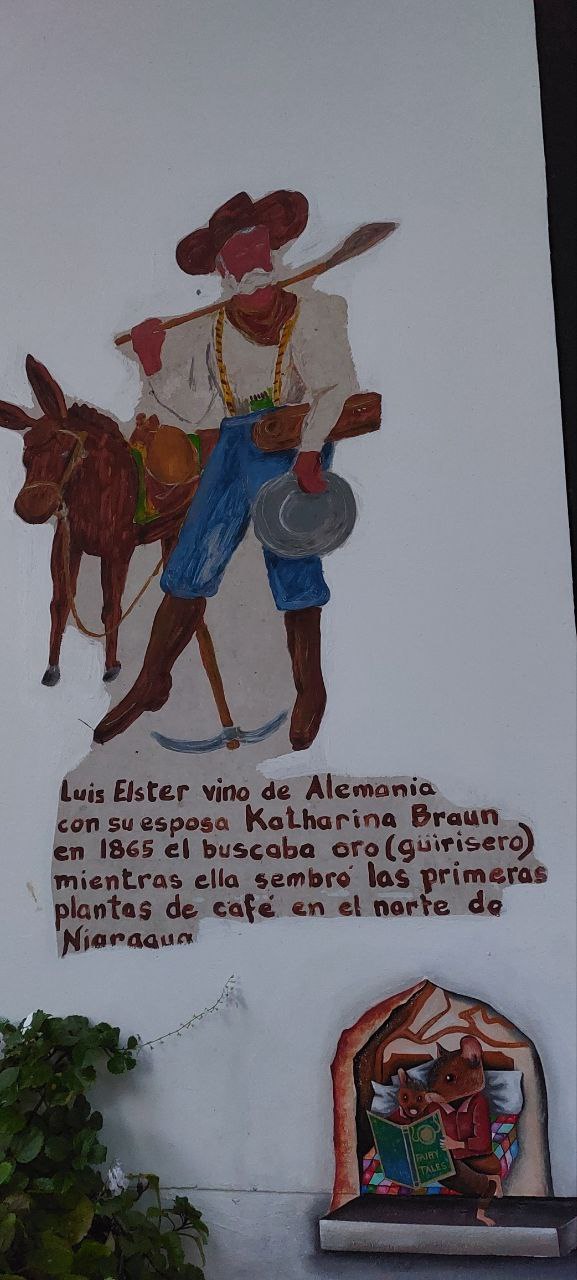 Luis Elster vino de Alemania
con su esposa Katharina Braun
en 1865 el buscaba oro (güirisero)
mientras ella sembró las primeras
plantas de café en el norte de
Nicaragua
FAIRY
TALES